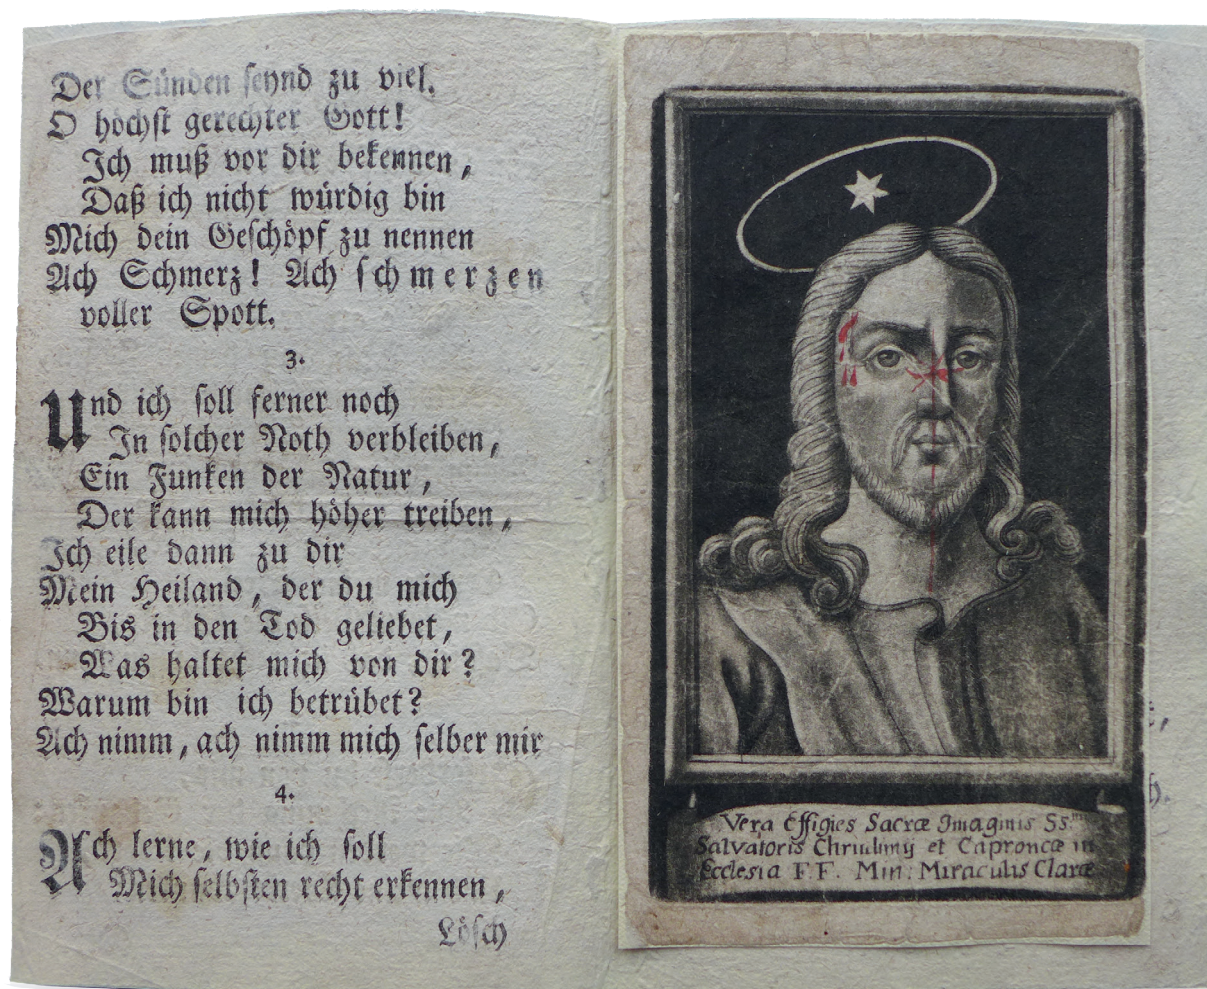 Der Sünden seynd zu viel.
O höchst gerechter Gott!
Ich muß vor dir bekennen,
Daß ich nicht würdig bin
Mich dein Geschöpf zu nennen
Ach Schmerz! Ach schmerzen
voller Spott.
3.
Und ich soll ferner noch
In solcher Noth verbleiben,
Ein Funken der Natur,
Der kann mich höher treiben,
Ich eile dann zu dir
Mein Heiland, der du mich
Bis in den Tod geliebet,
Was haltet mich von dir?
Warum bin ich betrübet?
Ach nimm, ach nimm mich selber mir
4.
Ach lerne, wie ich soll
Mich selbsten recht erkennen,
Lösch
Vera Effigies Sacræ Imaginis Ss.
Salvatoris et Caproncæ in
Ecclesia F.F. Min: Miraculis Claræ